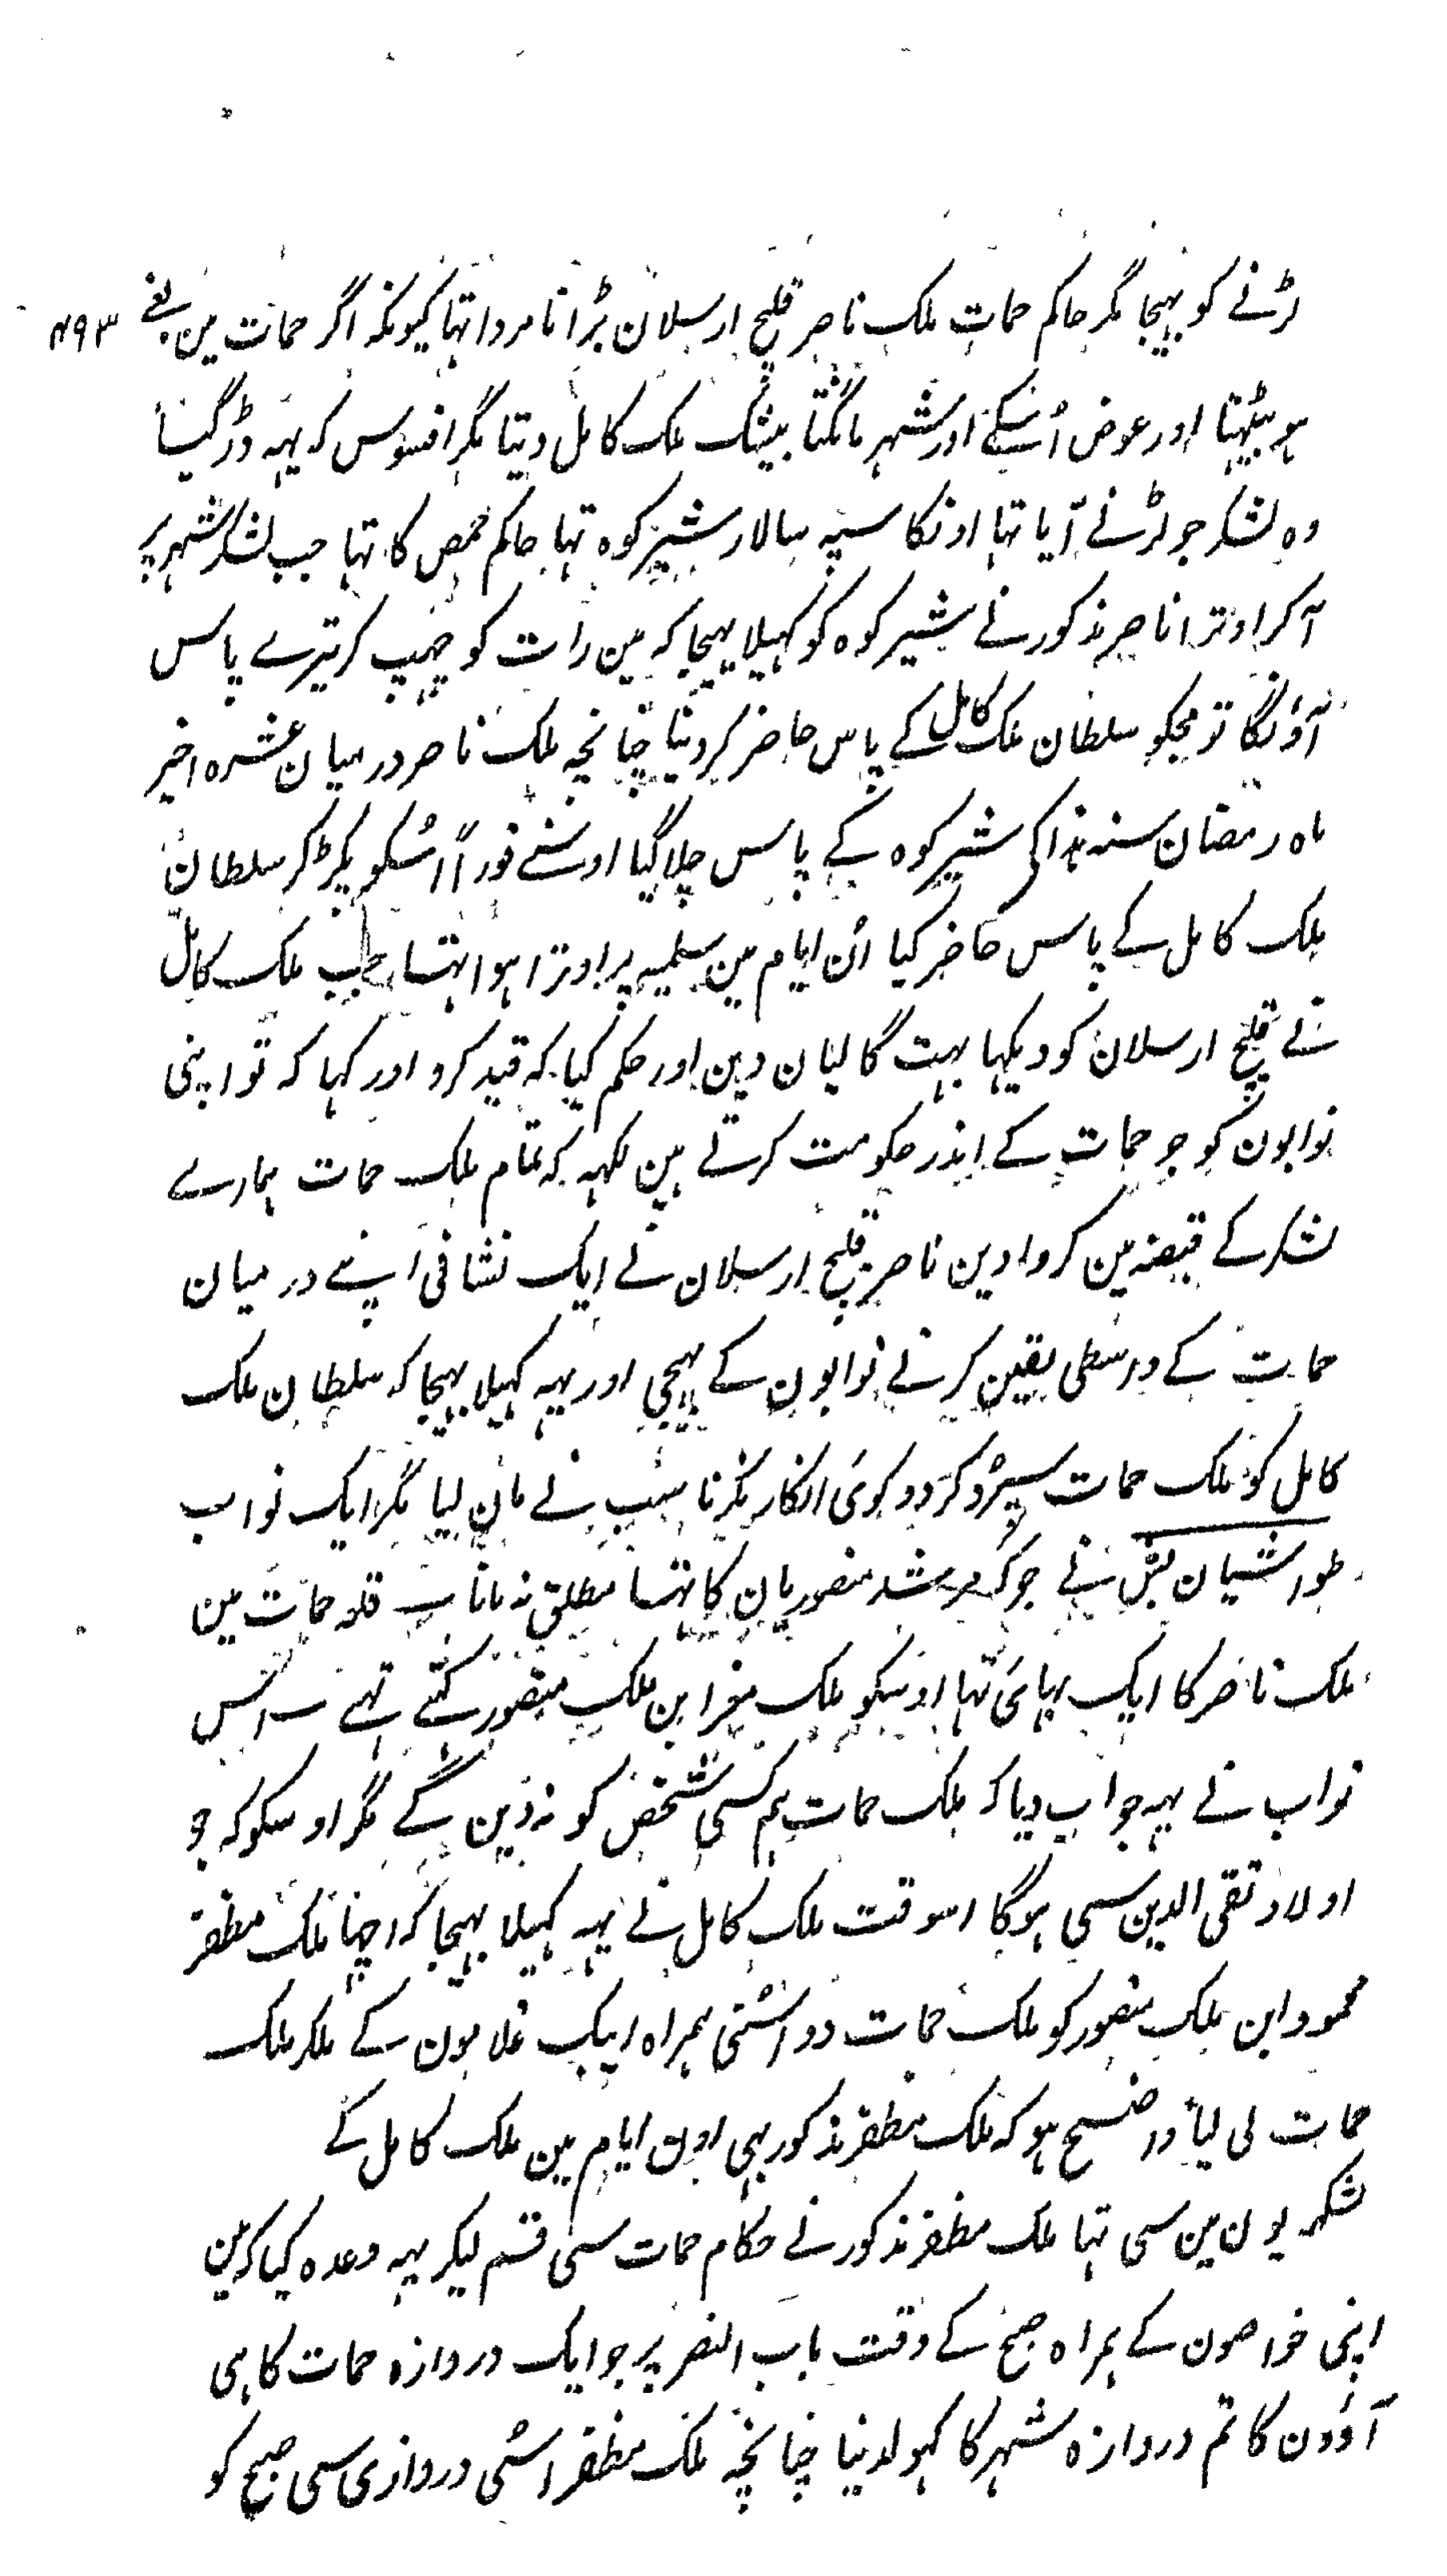 لڑنے کو بہیجا مگر حاکم حمات ملک ناصر قلیج ارسلان بڑا نامردا تہا کیونکہ اگر حمات مین بغے ۴۹۳
ہو بیٹہتا اور عوض اُسکے اور شہر مانگتا بیشک ملک کامل دیتا مگر افسوس کہ یہہ ڈر گیا
وہ لشکر جو لڑنے آیا تہا اونکا سپہ سالار شیر کوہ تہا حاکم حمص کا تہا جب لشکر شہر پر
آکر اوترا ناصر مذکور نے شیر کوہ کو کہیلا بہیجا کہ مین رات کو چہپ کر تیرے پاس
آؤنگا تو مجکو سلطان ملک کامل کے پاس حاضر کر دینا چنانچہ ملک ناصر درمیان عشرہ اخیر
ماہ رمضان سنہ ہذا کی شیر کوہ کے پاس چلا گیا اوسنے فوراً اسکو پکڑ کر سلطان
ملک کامل کے پاس حاضر کیا اُن ایام مین سلمیہ پر اوترا ہوا تہا جب ملک کامل
نے قلیج ارسلان کو دیکہا بہت گالیان دین اور حکم کیا کہ قید کرو اور کہا کہ تو اپنی
نوابون کو جو حمات کے اندر حکومت کرتے ہین لکہہ کہ تمام ملک حمات ہمارے
لشکر کے قبضہ مین کروا دین ناصر قلیج ارسلان نے ایک نشانی اپنے درمیان
حمات کے واسطی یقین کرنے نوابون کے بہیجی اور یہہ کہیلا بہیجا کہ سلطان ملک
کامل کو ملک حمات سپرد کردو کوئی انکار نکرنا سب نے مان لیا مگر ایک نواب
طواشیان نے جو کہ مرشد منصوریان کا تہا مطلق نہ مانا قلعہ حمات مین
ملک ناصر کا ایک بہائی تہا اوسکو ملک معز ابن ملک منصور کہتے تہے اس
نواب نے یہہ جواب دیا کہ ملک حمات ہم کسی شخص کو نہ دین گے مگر اوسکو کہ جو
اولاد تقی الدین سی ہوگا اسوقت ملک کامل نے یہہ کہیلا بہیجا کہ اچہا ملک مظفر
محمود ابن ملک منصور کو ملک حمات دو اسنی ہمراہ ایک غلامون کے ملکر ملک
حمات لی لیا واضح ہو کہ ملک مظفر مذکور بہی اون ایام مین ملک کامل کے
لشکریون مین سی تہا ملک مظفر مذکور نے حکام حمات سی قسم لیکر یہہ وعدہ کیا کہ مین
اپنی خواصون کے ہمراہ صبح کے وقت باب النصر پر جو ایک دروازہ حمات کا ہی
آؤون کا تم دروازہ شہر کا کہولدینا چنانچہ ملک مظفر اسی دروازی سی صبح کو